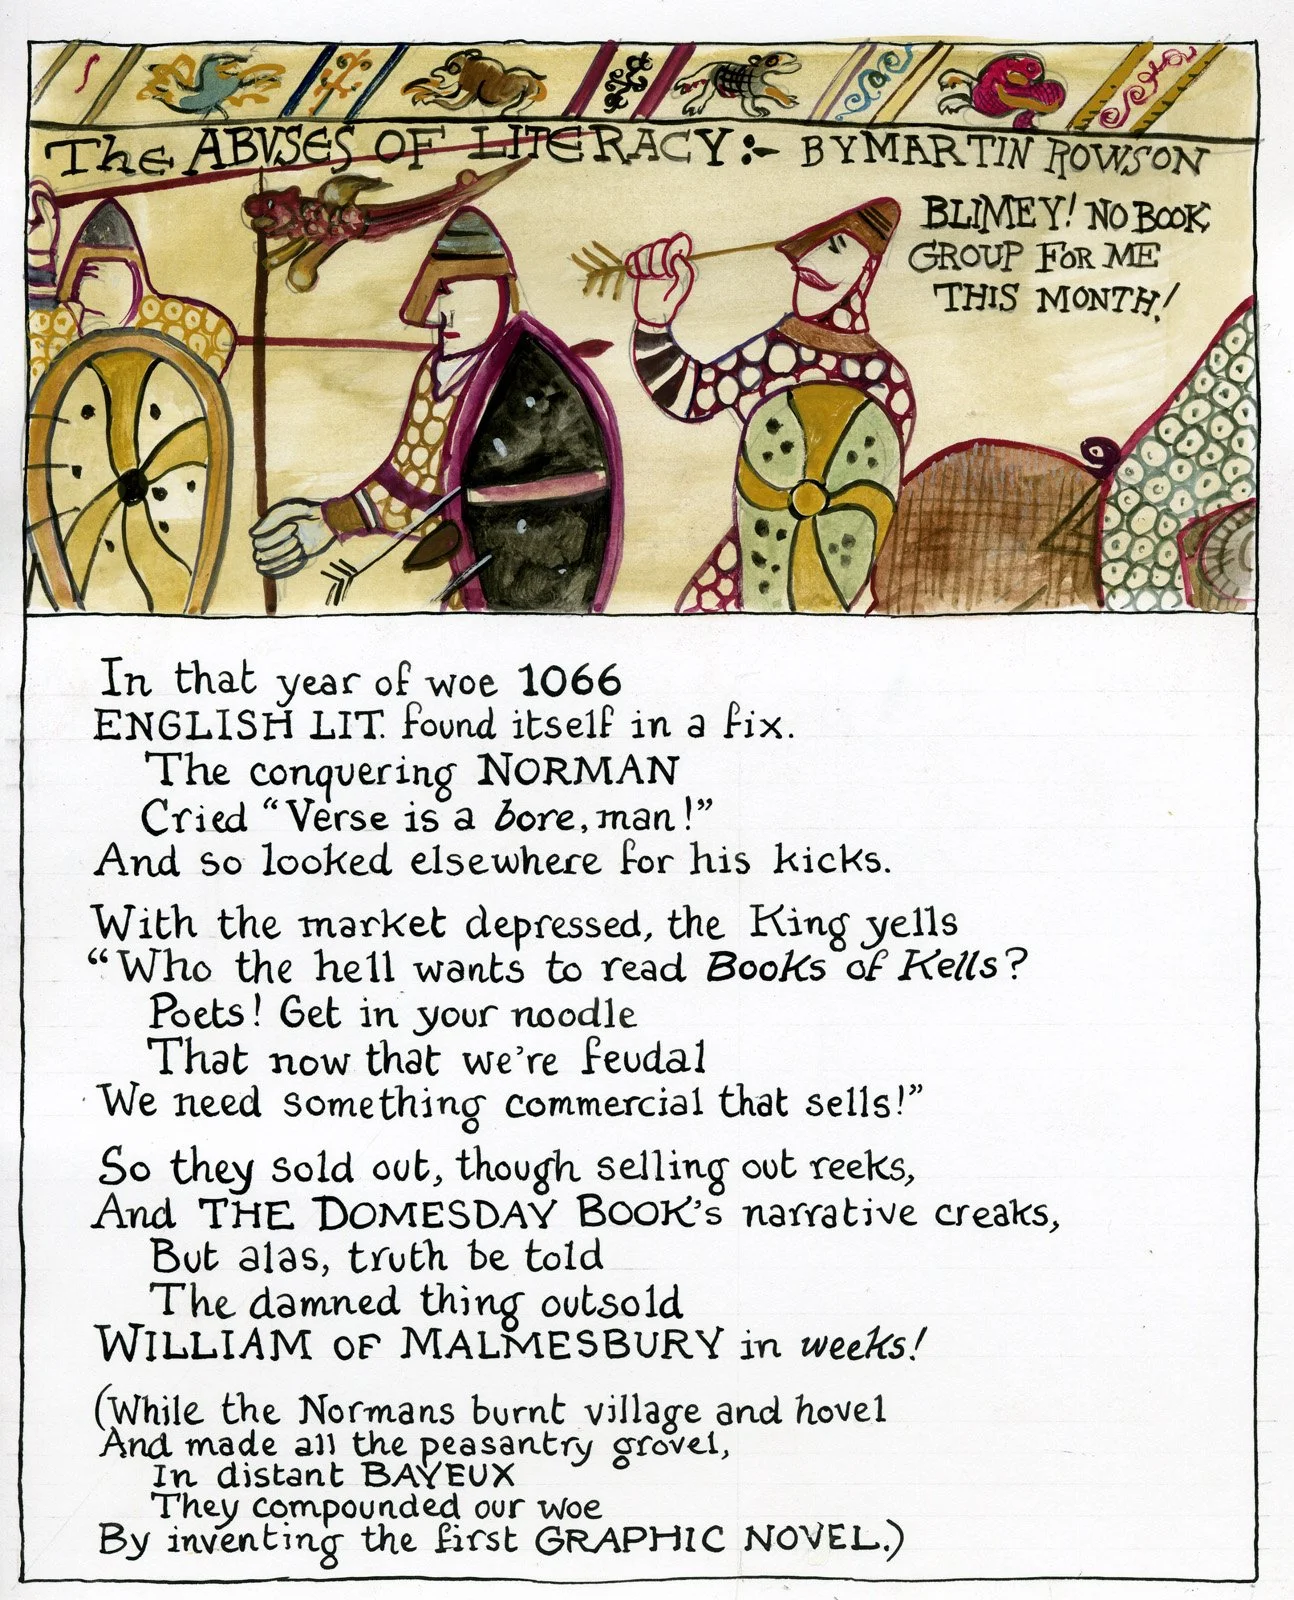 The ABUSES OF LITERACY:- BY MARTIN ROWSON
BLIMEY! NO BOOK
GROUP FOR ME
THIS MONTH!
In that year of woe 1066
ENGLISH LIT. found itself in a fix.
The conquering NORMAN
Cried "Verse is a bore, man!"
And so looked elsewhere for his kicks.
With the market depressed, the King yells
"Who the hell wants to read Books of Kells?
Poets! Get in your noodle
That now that we're feudal
We need something commercial that sells!"
So they sold out, though selling out reeks,
And THE DOMESDAY BOOK's narrative creaks,
But alas, truth be told
The damned thing outsold
WILLIAM OF MALMESBURY in weeks!
(While the Normans burnt village and hovel
And made all the peasantry grovel,
In distant BAYEUX
They compounded our woe
By inventing the first GRAPHIC NOVEL.)